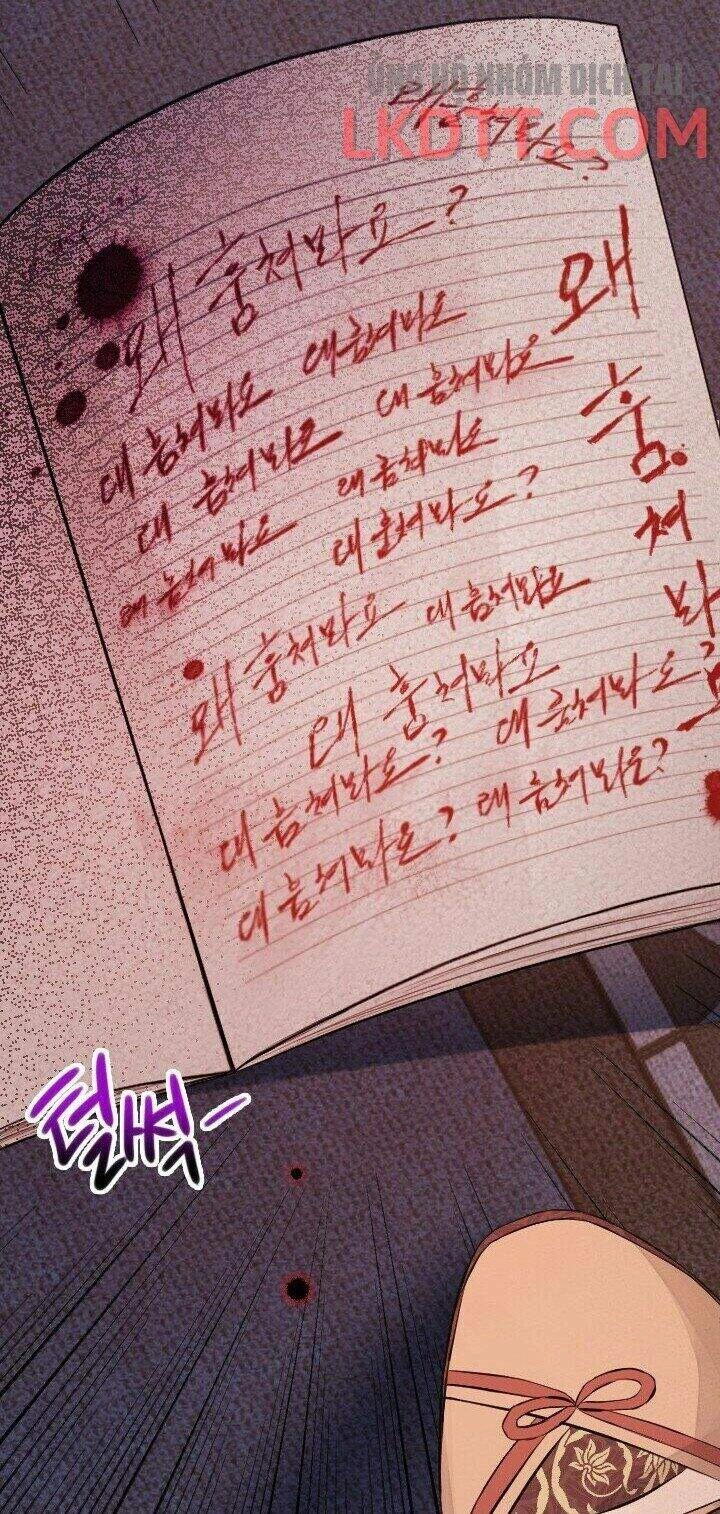 ỦNG HỘ NHÓM DỊCH TẠI
LKDTT.COM
왜 훔쳐봐요?
왜 훔쳐봐요
왜 훔쳐봐요 왜 훔쳐봐요
왜 훔쳐봐요 왜 훔쳐봐요
왜 훔쳐봐요 왜 훔쳐봐요?
왜 훔쳐봐요 왜 훔쳐봐요
왜 훔쳐봐요 왜 훔쳐봐요?
왜 훔쳐봐요? 왜 훔쳐봐요?
왜 훔쳐봐요?
왜 훔쳐봐요
털썩